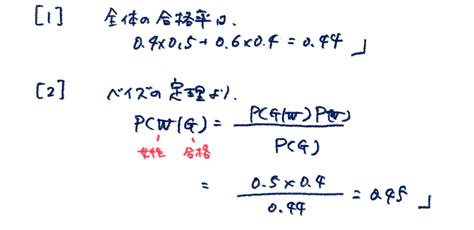 [1] 全体の合格率は、
0.4×0.5+0.6×0.4=0.44
[2] ベイズの定理より、
P(W|G) = P(G|W)P(W) / P(G)
女性 合格
= 0.5×0.4 / 0.44 = 0.45